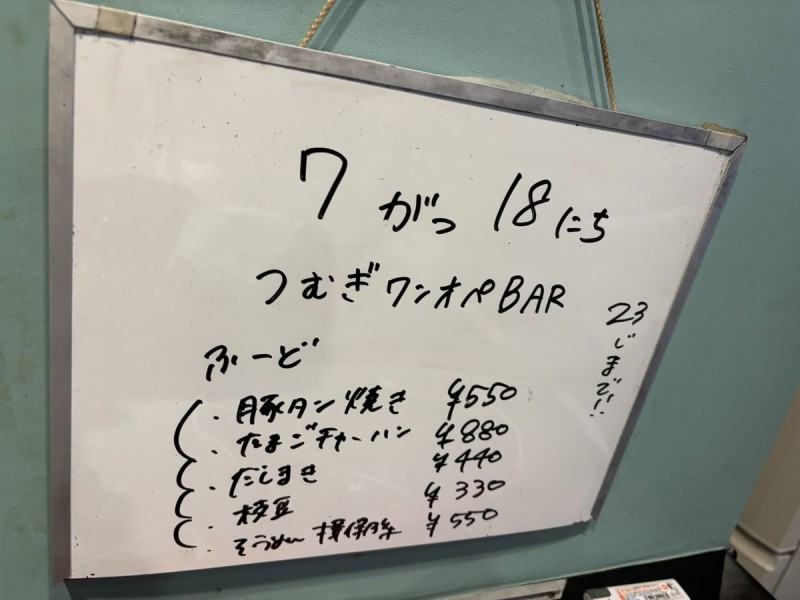 7がつ18にち
つむぎワンオペBAR
23じまで!!
ふーど
・豚タン焼き ¥550
・たまごチャーハン ¥880
・だしまき ¥440
・枝豆 ¥330
・そうめん ¥550